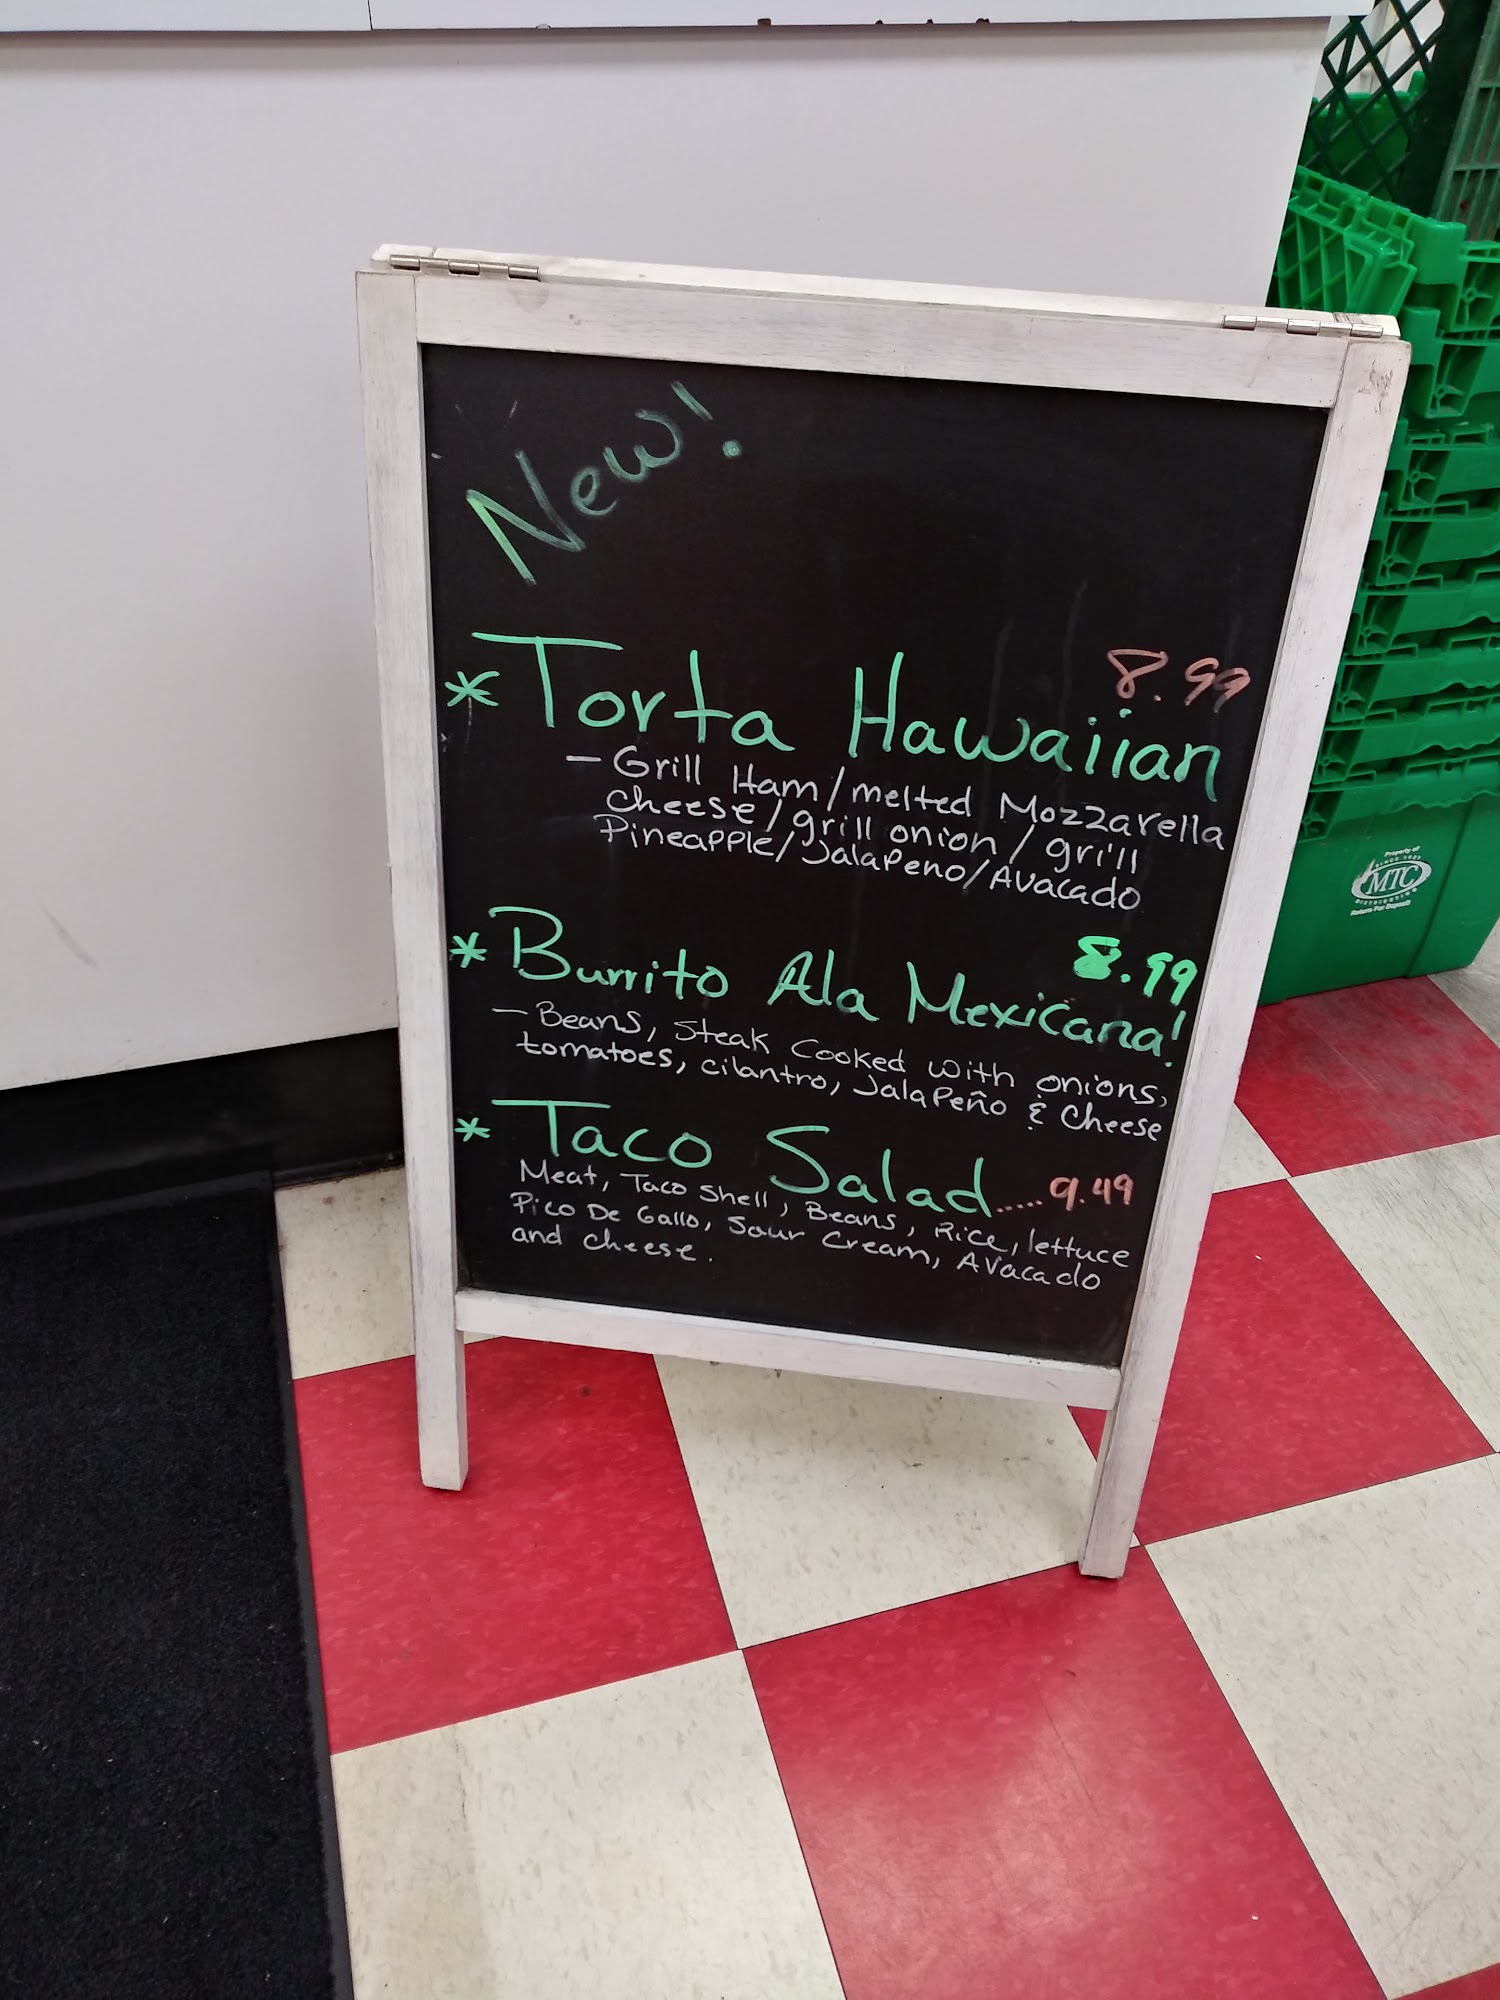 New!
8.99
* Torta Hawaiian
- Grill Ham/melted Mozzarella
Cheese/grill onion/grill
Pineapple/Jalapeno/Avacado
8.99
* Burrito Ala Mexicana!
- Beans, Steak Cooked with onions,
tomatoes, cilantro, Jalapeño & Cheese
* Taco Salad..... 9.49
Meat, Taco Shell, Beans, Rice, lettuce
Pico De Gallo, Sour Cream, Avacado
and cheese.
Property of
SINCE 1921
MTC
DISTRIBUTING
Return For Deposit